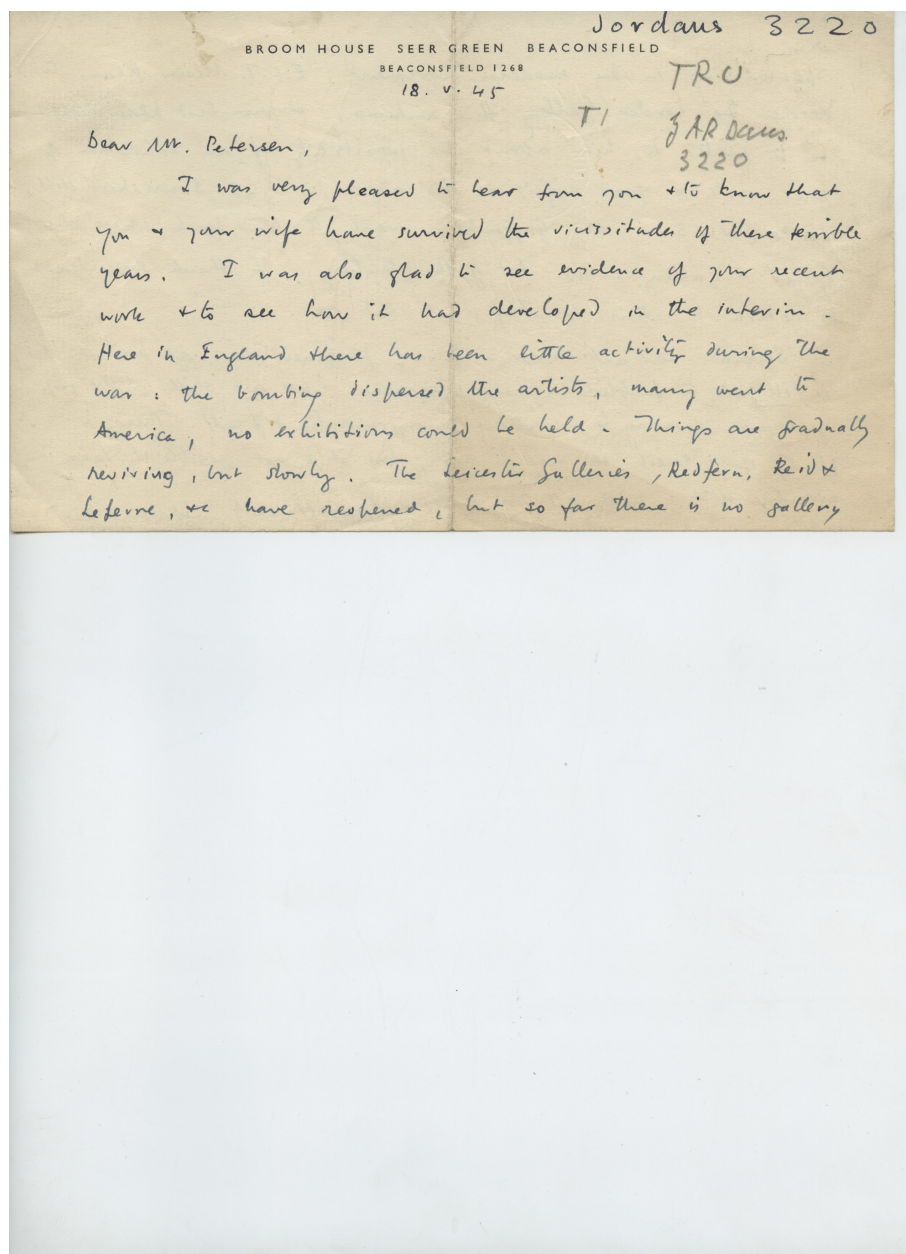 Jordans 3220
BROOM HOUSE SEER GREEN BEACONSFIELD
BEACONSFIELD 1268
TRU
18. V. 45
T1
JARDans
3220
Dear Mr. Petersen,
I was very pleased to hear from you & to know that
you & your wife have survived the vicissitudes of these terrible
years. I was also glad to see evidence of your recent
work & to see how it had developed in the interim.
Here in England there has been little activity during the
war: the bombing dispersed the artists, many went to
America, no exhibitions could be held. Things are gradually
reviving, but slowly. The Leicester Galleries, Redfern, Reid &
Lefevre, &c have reopened, but so far there is no gallery